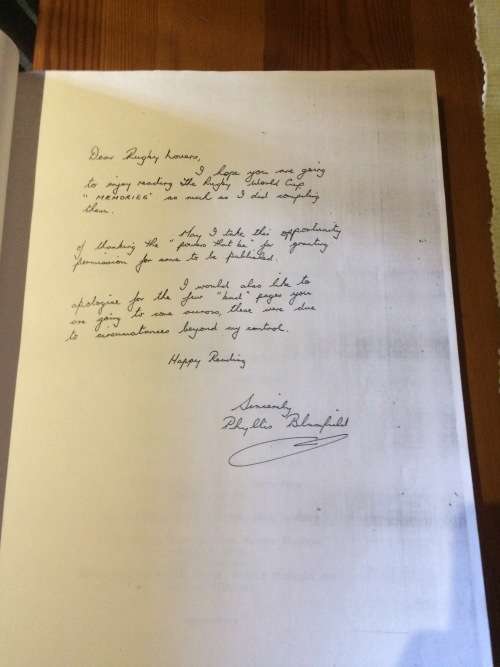 Dear Rugby Lovers,
I hope you are going
to enjoy reading The Rugby World Cup
"MEMORIES" so much as I did compiling
them.
May I take this opportunity
of thanking the "powers that be" for granting
permission for same to be published.
I would also like to
apologise for the few "bad" pages you
are going to come across, these were due
to circumstances beyond my control.
Happy Reading
Sincerely
Phyllis